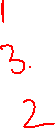 1
3.
2